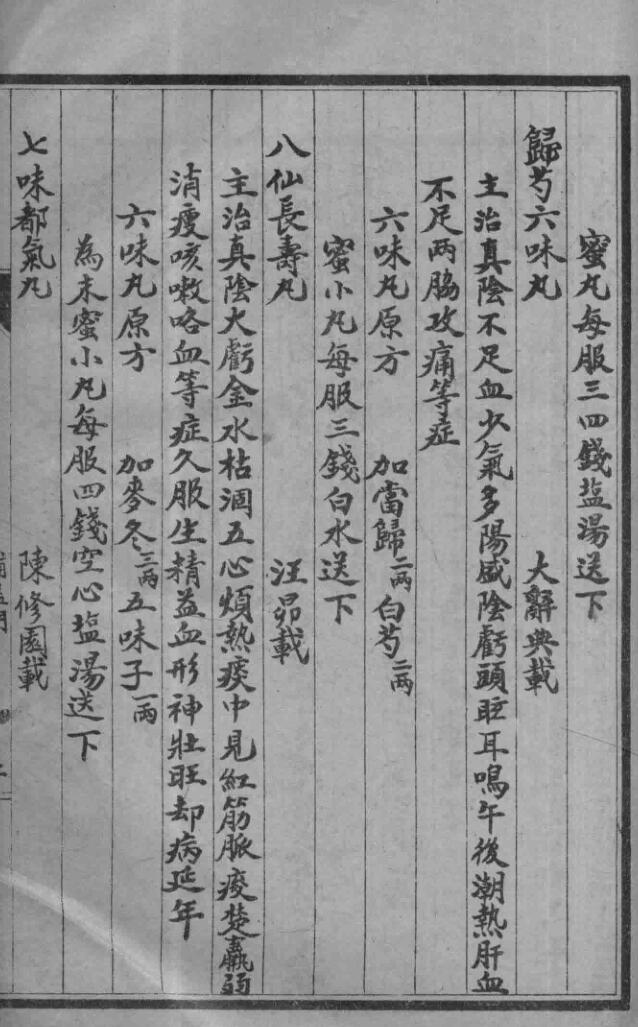 蜜丸每服三四錢盐湯送下
歸芍六味丸 大辭典載
主治真陰不足血少氣多陽盛陰虧頭眩耳鳴午後潮熱肝血
不足两脇攻痛等症
六味丸原方 加當歸二两白芍二两
蜜小丸每服三錢白水送下
八仙長壽丸 汪昂載
主治真陰大虧金水枯涸五心煩熱痰中見紅筋脈痠楚羸弱
消瘦咳嗽咯血等症久服生精益血形神壯旺却病延年
六味丸原方 加麥冬三两五味子一两
為末蜜小丸每服四錢空心塩湯送下
七味都氣丸 陳修園載